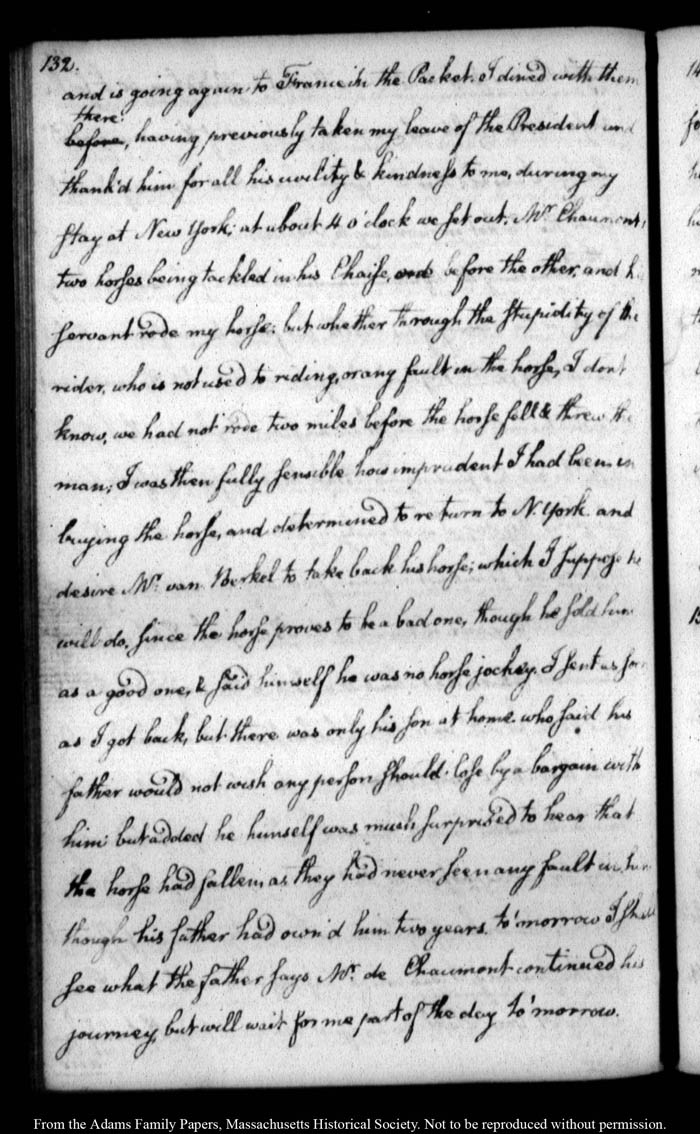 132.
and is going again to France in the Packet. I dined with them
there.
before, having previously taken my leave of the President and
thank'd him for all his civility & kindness to me, during my
stay at New York; at about 4 o'clock we set out. Mr. Chaumont's
two horses being tackled in his Chaise, one before the other, and his
servant rode my horse: but whether through the stupidity of the
rider, who is not used to riding, or any fault in the horse, I don't
know, we had not rode two miles before the horse fell & threw the
man; I was then fully sensible how imprudent I had been in
buying the horse, and determined to return to N. York. and
desire Mr. van Berkel to take back his horse; which I suppose he
will do, since the horse proves to be a bad one, though he sold him
as a good one, & said himself he was no horse jockey. I sent as soon
as I got back, but there was only his son at home. who said his
father would not wish any person should lose by a bargain with
him: but added he himself was much surprised to hear that
the horse had fallen, as they had never seen any fault in him
though his father had own'd him two years. to'morrow I shall
see what the father says Mr. de Chaumont continued his
journey, but will wait for me part of the day to'morrow.
From the Adams Family Papers, Massachusetts Historical Society. Not to be reproduced without permission.